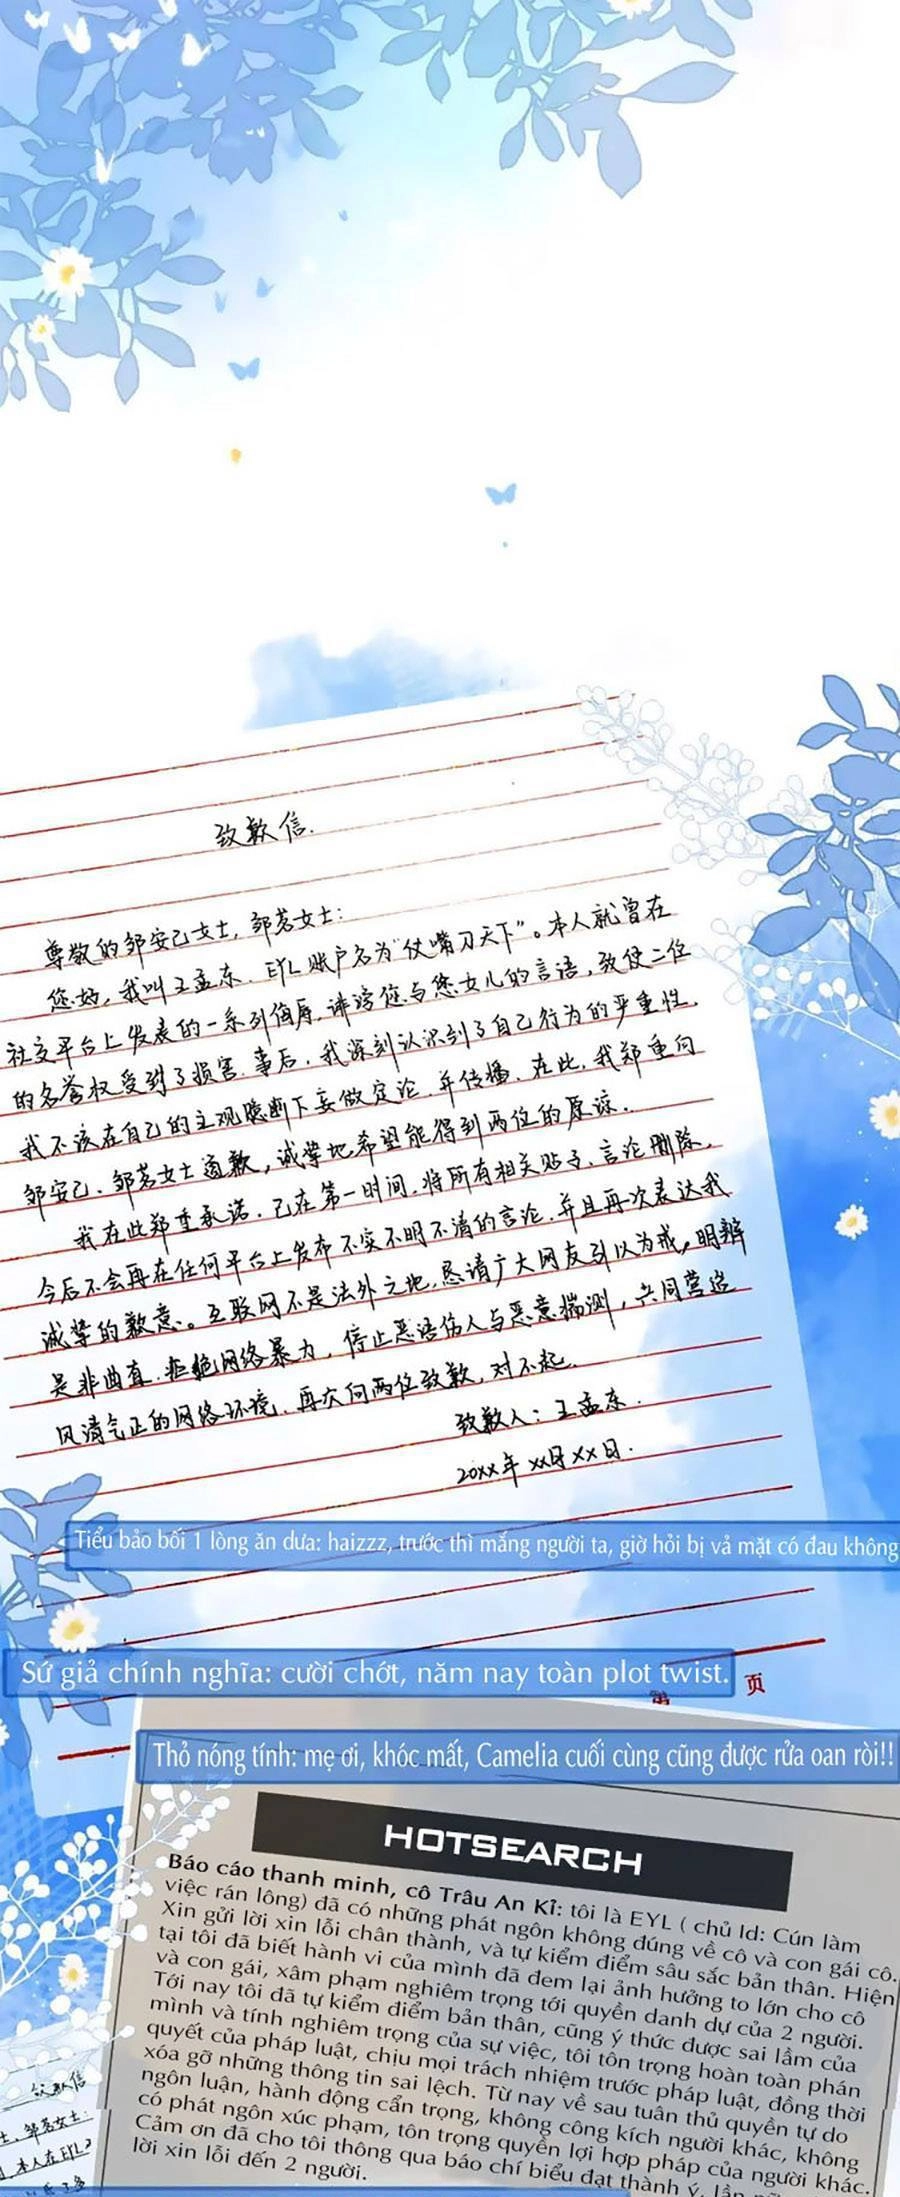 致歉信.
尊敬的邹安己女士, 邹茗女士:
您好, 我叫王孟东. EYL账户名为"仗嘴刃天下"。本人就曾在
社交平台上发表的一系列侮辱, 诽谤您与您女儿的言语, 致使二位
的名誉权受到了损害. 事后, 我深刻认识到了自己行为的严重性.
我不该在自己的主观臆断下妄做定论, 并传播. 在此, 我郑重向
邹安己、邹茗女士道歉, 诚挚地希望能得到两位的原谅.
我在此郑重承诺, 已在第一时间, 将所有相关贴子、言论删除,
今后不会再在任何平台上发布不实不明不清的言论, 并且再次表达我
诚挚的歉意。互联网不是法外之地, 恳请广大网友引以为戒, 明辨
是非曲直, 拒绝网络暴力, 停止恶语伤人与恶意揣测, 共同营造
风清气正的网络环境. 再次向两位致歉, 对不起.
致歉人: 王孟东.
20xx年 xx月 xx日.
Tiểu bảo bối 1 lòng ăn dưa: haizzz, trước thì mắng người ta, giờ hỏi bị vả mặt có đau không
Sứ giả chính nghĩa: cười chớt, năm nay toàn plot twist.
页
Thỏ nóng tính: mẹ ơi, khóc mất, Camelia cuối cùng cũng được rửa oan rồi!!
HOTSEARCH
Báo cáo thanh minh, cô Trâu An Kỉ: tôi là EYL ( chủ Id: Cún làm
việc rán lông) đã có những phát ngôn không đúng về cô và con gái cô.
Xin gửi lời xin lỗi chân thành, và tự kiểm điểm sâu sắc bản thân. Hiện
tại tôi đã biết hành vi của mình đã đem lại ảnh hưởng to lớn cho cô
và con gái, xâm phạm nghiêm trọng tới quyền danh dự của 2 người.
Tới nay tôi đã tự kiểm điểm bản thân, cũng ý thức được sai lầm của
mình và tính nghiêm trọng của sự việc, tôi tôn trọng hoàn toàn phán
quyết của pháp luật, chịu mọi trách nhiệm trước pháp luật, đồng thời
xóa gỡ những thông tin sai lệch. Từ nay về sau tuân thủ quyền tự do
ngôn luận, hành động cẩn trọng, không công kích người khác, không
có phát ngôn xúc phạm, tôn trọng quyền lợi hợp pháp của người khác.
Cảm ơn đã cho tôi thông qua báo chí biểu đạt thành ý, lần
lời xin lỗi đến 2 người.
致歉信
邹茗女士:
本人在EYL